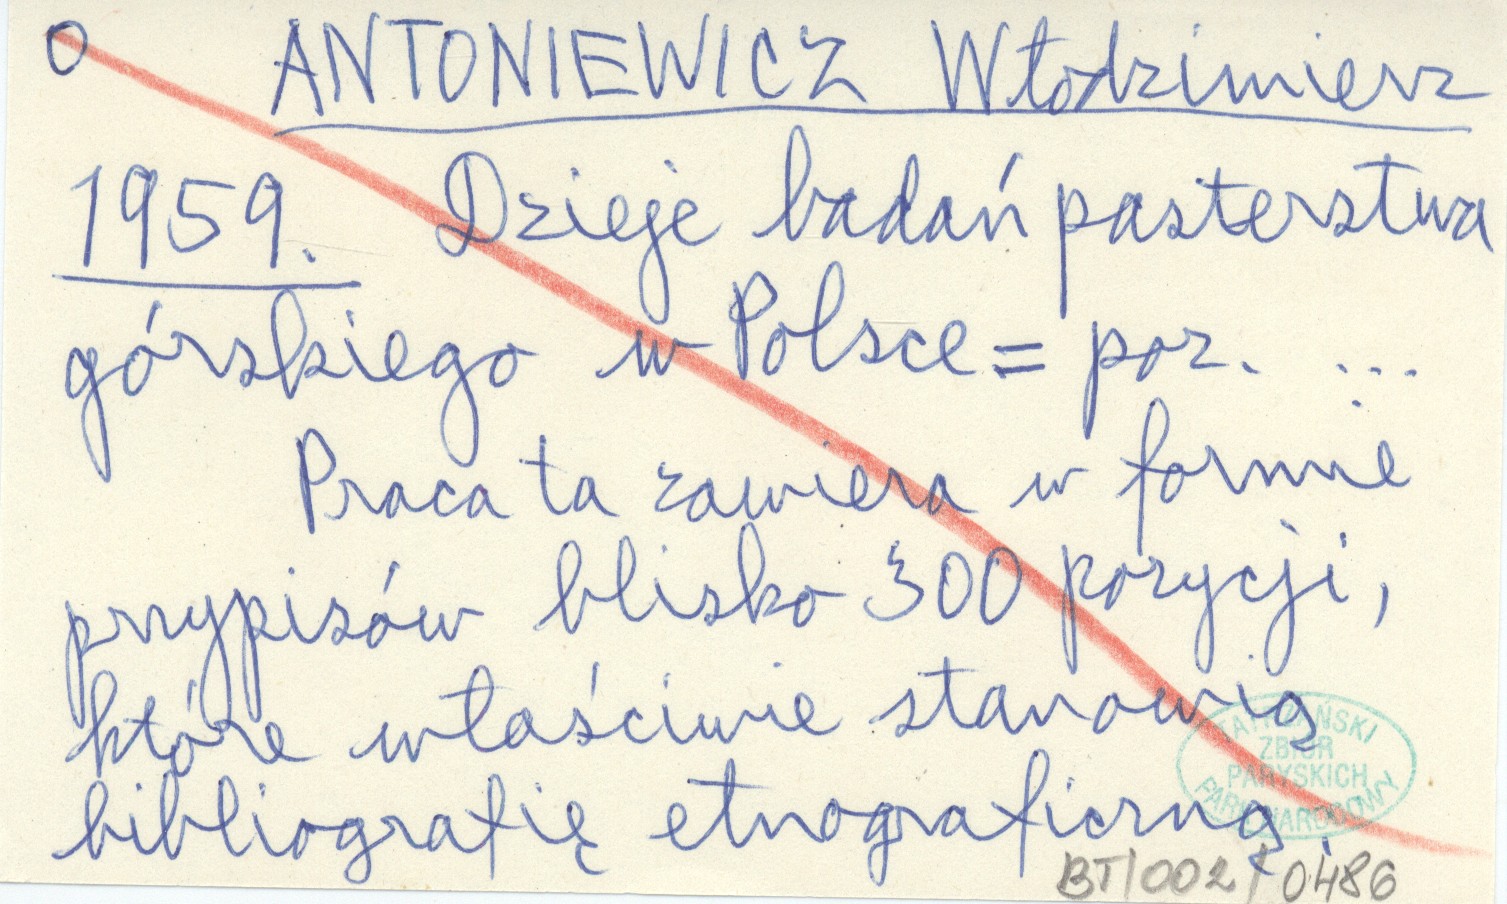 O ANTONIEWICZ Włodzimierz
1959. Dzieje badań pasterstwa
górskiego w Polsce = por. ...
Praca ta zawiera w formie
przypisów blisko 300 pozycji,
które właściwie stanowią
bibliografię etnograficzną
TATRZAŃSKI
ZBIÓR
PARYSKICH
PARK NARODOWY
BT/002/0486